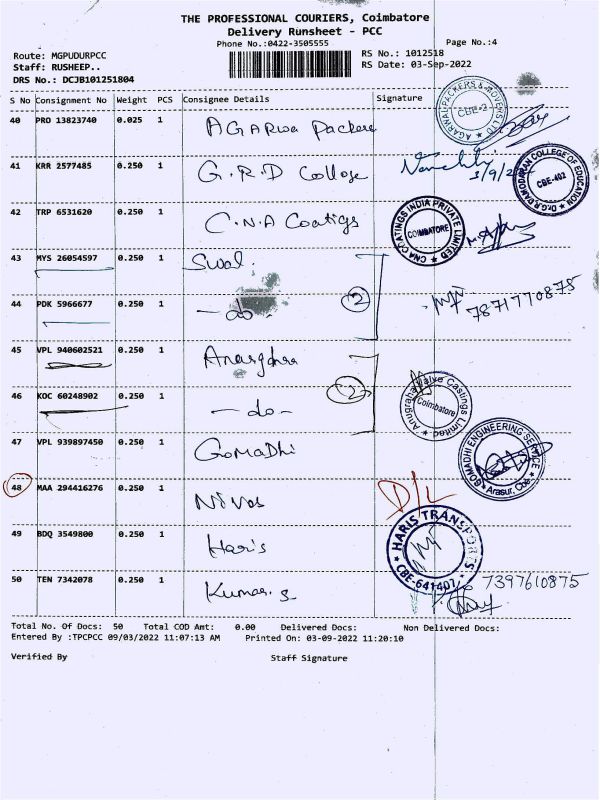 THE PROFESSIONAL COURIERS, Coimbatore
Delivery Runsheet - PCC
Phone No.:0422-3505555
Page No.:4
Route: MGPUDURPCC
RS No.: 1012518
Staff: RUSHEEP..
RS Date: 03-Sep-2022
DRS No.: DCJB101251804
S No Consignment No Weight PCS Consignee Details Signature
40 PRO 13823740 0.025 1 AGARWA Packers
AGARWAL PACKERS & MOVERS LTD CBE-2
41 KRR 2577485 0.250 1 G.R.D College
Dr.G.R.DAMODARAN COLLEGE OF EDUCATION CBE-402
42 TRP 6531620 0.250 1 C.N.A Coatigs
CNA COATINGS INDIA PRIVATE LIMITED COIMBATORE
43 MYS 26054597 0.250 1 Swal.
2 7871770875
44 PDK 5966677 0.250 1 -do-
45 VPL 940602521 0.250 1
46 KOC 60248902 0.250 1 -do- 2
Anugraha Valve Castings Limited Coimbatore
47 VPL 939897450 0.250 1 GOMADHI
GOMADHI ENGINEERING SERVICE Arasur, Cbe
48 MAA 294416276 0.250 1 Nivas D/L
49 BDQ 3549800 0.250 1 Haris
HARIS TRANSPORTS CBE-641407
50 TEN 7342078 0.250 1 Kumar. S 7397610875
Total No. Of Docs: 50 Total COD Amt: 0.00 Delivered Docs: Non Delivered Docs:
Entered By :TPCPCC 09/03/2022 11:07:13 AM Printed On: 03-09-2022 11:20:10
Verified By Staff Signature